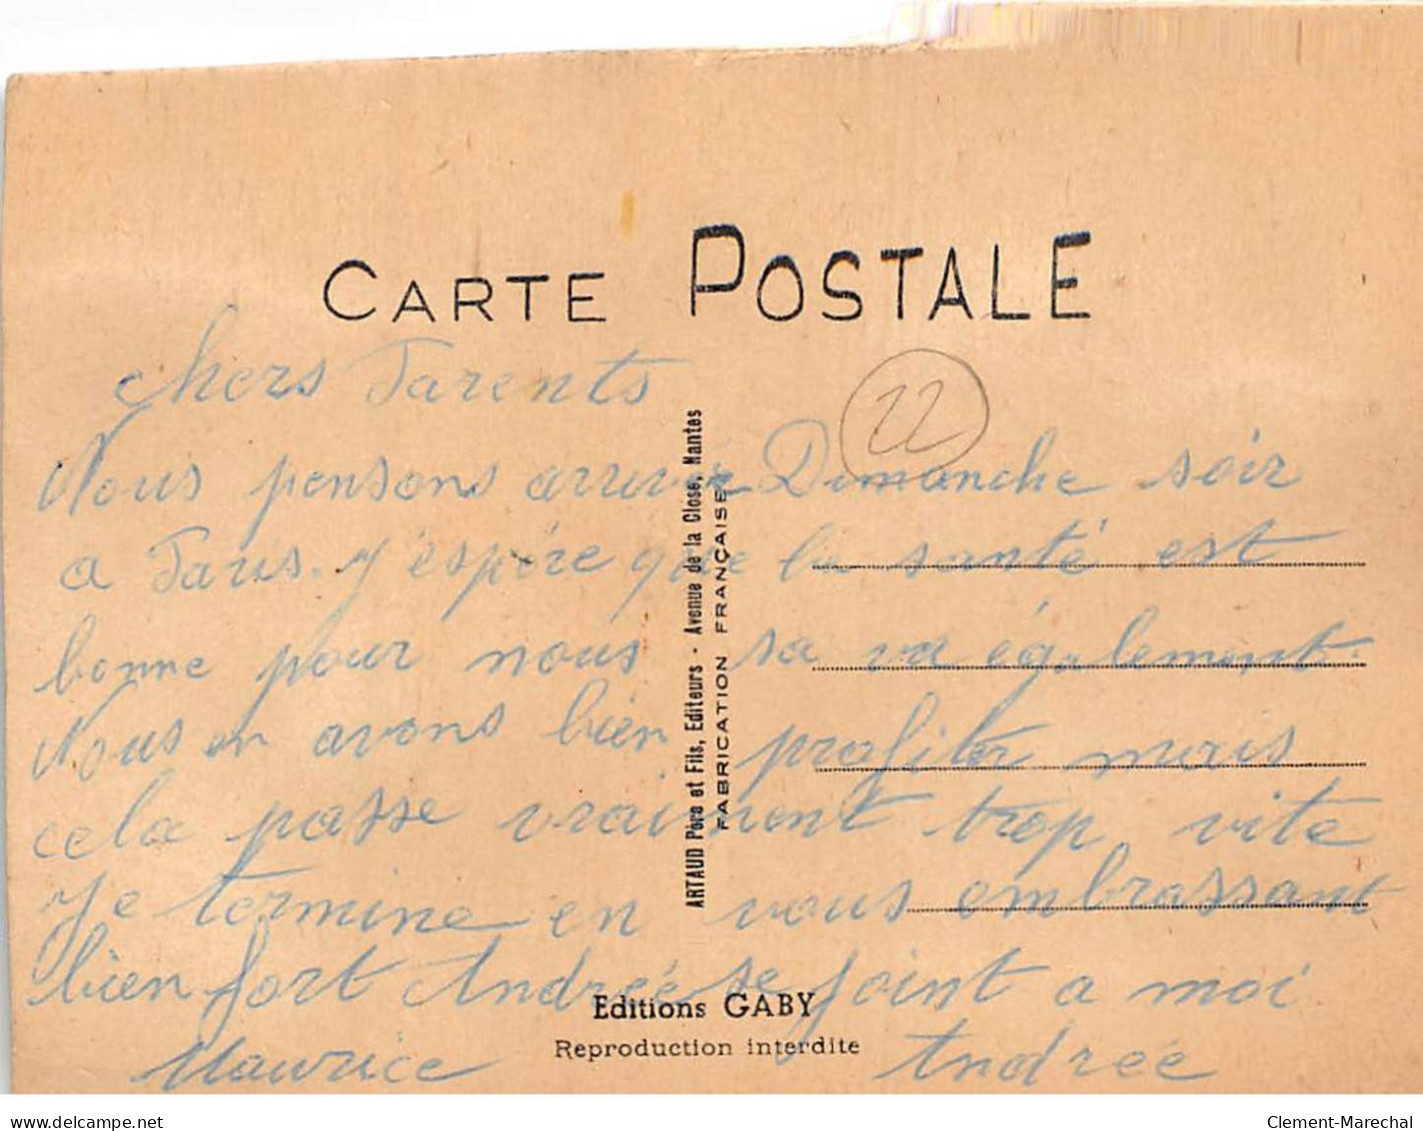 CARTE POSTALE
22
chers Parents
Nous pensons arriver Dimanche soir
a Paris. J'éspére que la santé est
bonne pour nous sa va également.
Nous en avons bien profiter mais
cela passe vraiment trop vite
Je termine en vous embrassant
bien fort Andrée se joint a moi
Maurice Andrée
ARTAUD Père et Fils, Editeurs - Avenue de la Close, Nantes
FABRICATION FRANÇAISE
Editions GABY
Reproduction interdite
delcampe.net
Clement-Marechal